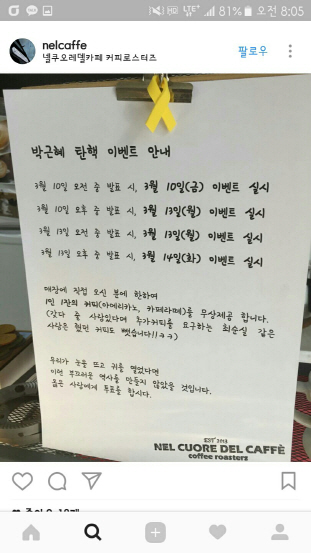 81% 오전 8:05
nelcaffe
넬쿠오레델카페 커피로스터즈
팔로우
박근혜 탄핵 이벤트 안내
3월 10일 오전 중 발표 시, 3월 10일(금) 이벤트 실시
3월 10일 오후 중 발표 시, 3월 13일(월) 이벤트 실시
3월 13일 오전 중 발표 시, 3월 13일(월) 이벤트 실시
3월 13일 오후 중 발표 시, 3월 14일(화) 이벤트 실시
매장에 직접 오신 분에 한하여
1인 1잔의 커피(아메리카노, 카페라떼)를 무상제공 합니다.
(갔다 줄 사람있다며 추가커피를 요구하는 최순실 같은
사람은 줬던 커피도 뺏습니다!!ㅋㅋ)
우리가 눈을 뜨고 귀를 열었다면
이런 부끄러운 역사를 만들지 않았을 것입니다.
옳은 사람에게 투표를 합시다.
EST 2013
NEL CUORE DEL CAFFÈ
coffee roasters